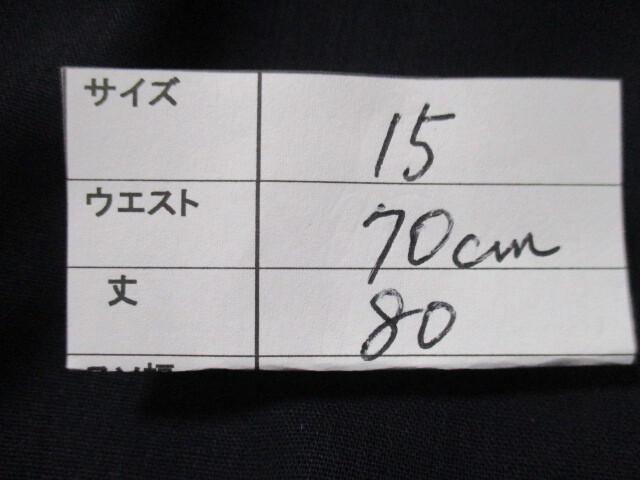 サイズ 15
ウエスト 70cm
丈 80